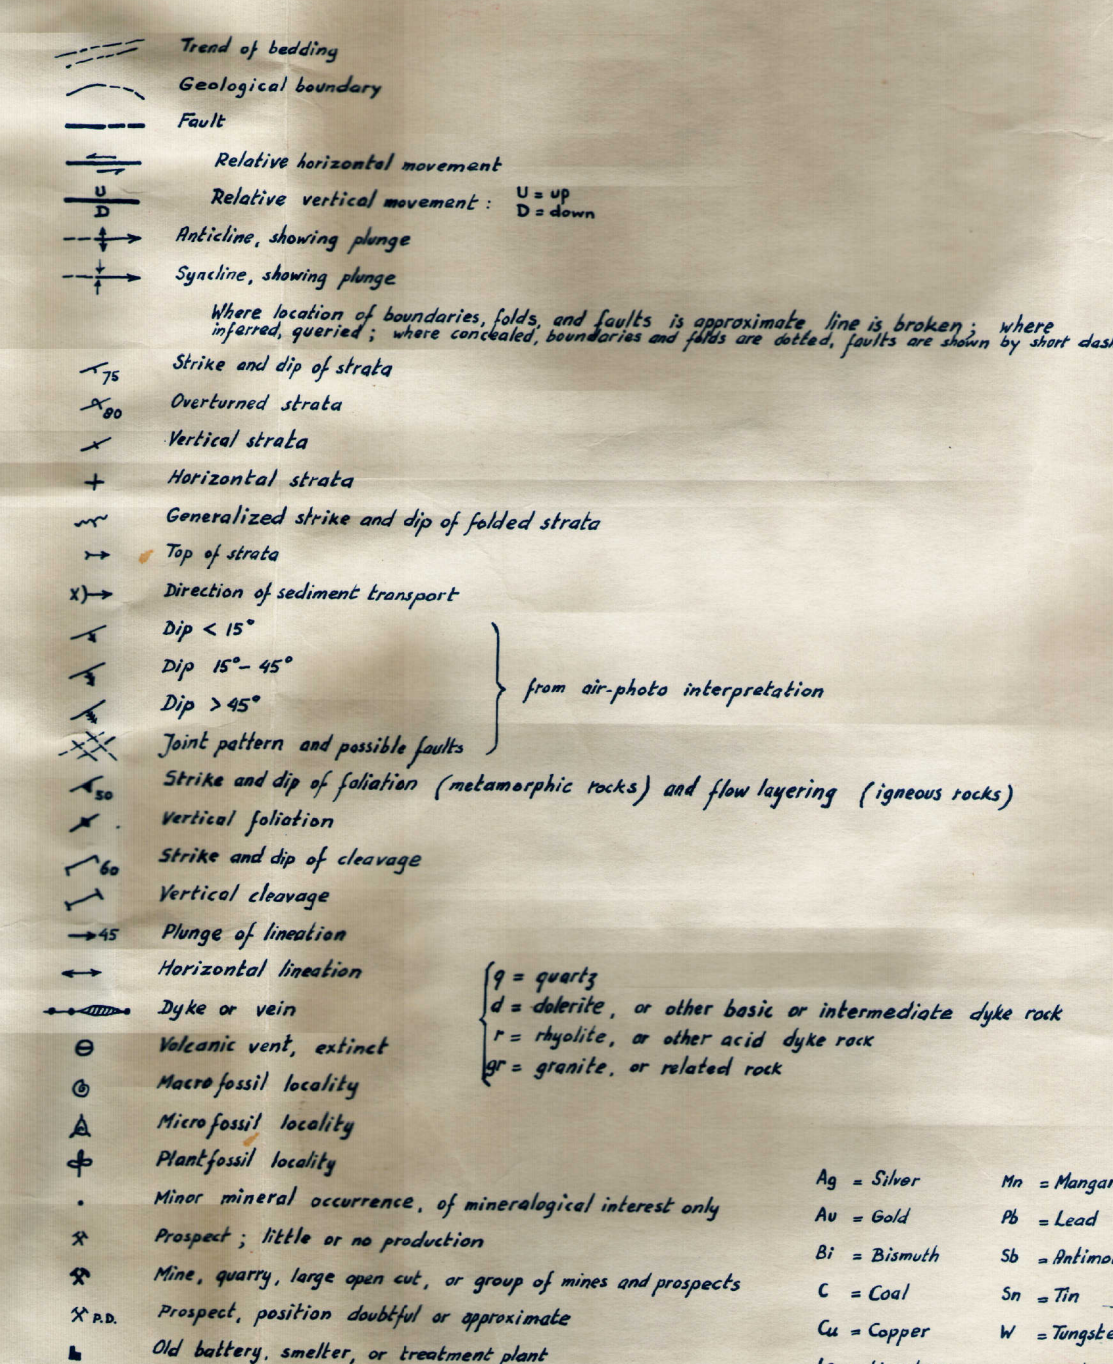 Trend of bedding
Geological boundary
Fault
Relative horizontal movement
U
D
Relative vertical movement :
U = up
D = down
Anticline, showing plunge
Syncline, showing plunge
Where location of boundaries, folds, and faults is approximate line is broken ; where
inferred, queried ; where concealed, boundaries and folds are dotted, faults are shown by short
75 Strike and dip of strata
80 Overturned strata
Vertical strata
Horizontal strata
Generalized strike and dip of folded strata
Top of strata
x) Direction of sediment transport
Dip < 15°
Dip 15°- 45°
Dip > 45°
Joint pattern and possible faults
from air-photo interpretation
50 Strike and dip of foliation (metamorphic rocks) and flow layering (igneous rocks)
Vertical foliation
60 Strike and dip of cleavage
Vertical cleavage
45 Plunge of lineation
Horizontal lineation
Dyke or vein
q = quartz
d = dolerite, or other basic or intermediate dyke rock
r = rhyolite, or other acid dyke rock
gr = granite, or related rock
Volcanic vent, extinct
Macrofossil locality
Microfossil locality
Plantfossil locality
Minor mineral occurrence, of mineralogical interest only
Prospect ; little or no production
Mine, quarry, large open cut, or group of mines and prospects
P.D. Prospect, position doubtful or approximate
Old battery, smelter, or treatment plant
Ag = Silver
Au = Gold
Bi = Bismuth
C = Coal
Cu = Copper
Mn =
Pb = Lead
Sb =
Sn = Tin
W =